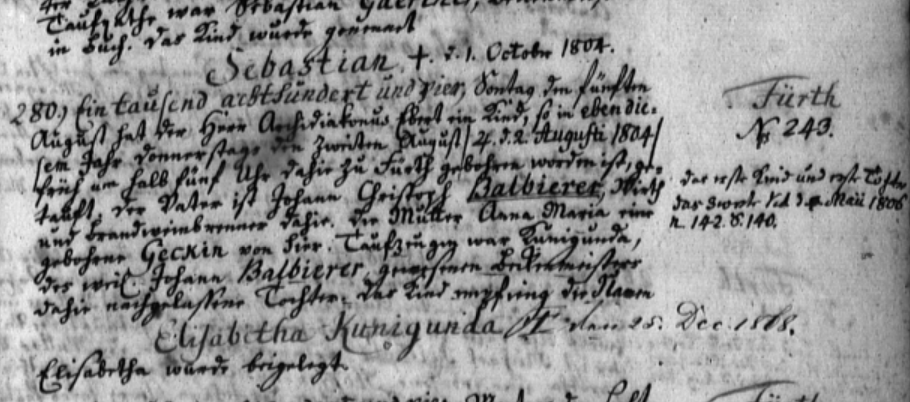 Taufpathe war Sebastian
in Buch. Das Kind wurde genennet
Sebastian † d. 1. October 1804.
280.) Ein tausend achthundert und vier, Sontag den fünften
August hat der Herr Archidiakonus Ebert ein Kind, so in eben die-
sem Jahr Donnerstags den zweiten August /: d. 2. Augusti 1804/
früh um halb fünf Uhr dahie zu Fürth gebohren worden ist, ge-
tauft. Der Vater ist Johann Christoph Balbierer, Wirth
und Brandweinbrenner dahie. Die Mutter Anna Maria eine
gebohrne Geckin von hier. Taufzeugin war Kunigunda,
des weil. Johann Balbierer, gewesenen Beckenmeisters
dahie nachgelassene Tochter. Das Kind empfing die Namen
Elisabetha Kunigunda † den 25. Dec. 1868.
Elisabetha wurde beigelegt.
Fürth
№ 243.
das erste Kind und erste Tochter
das zweite Maii 1806
n. 142. S. 140.
Fürth